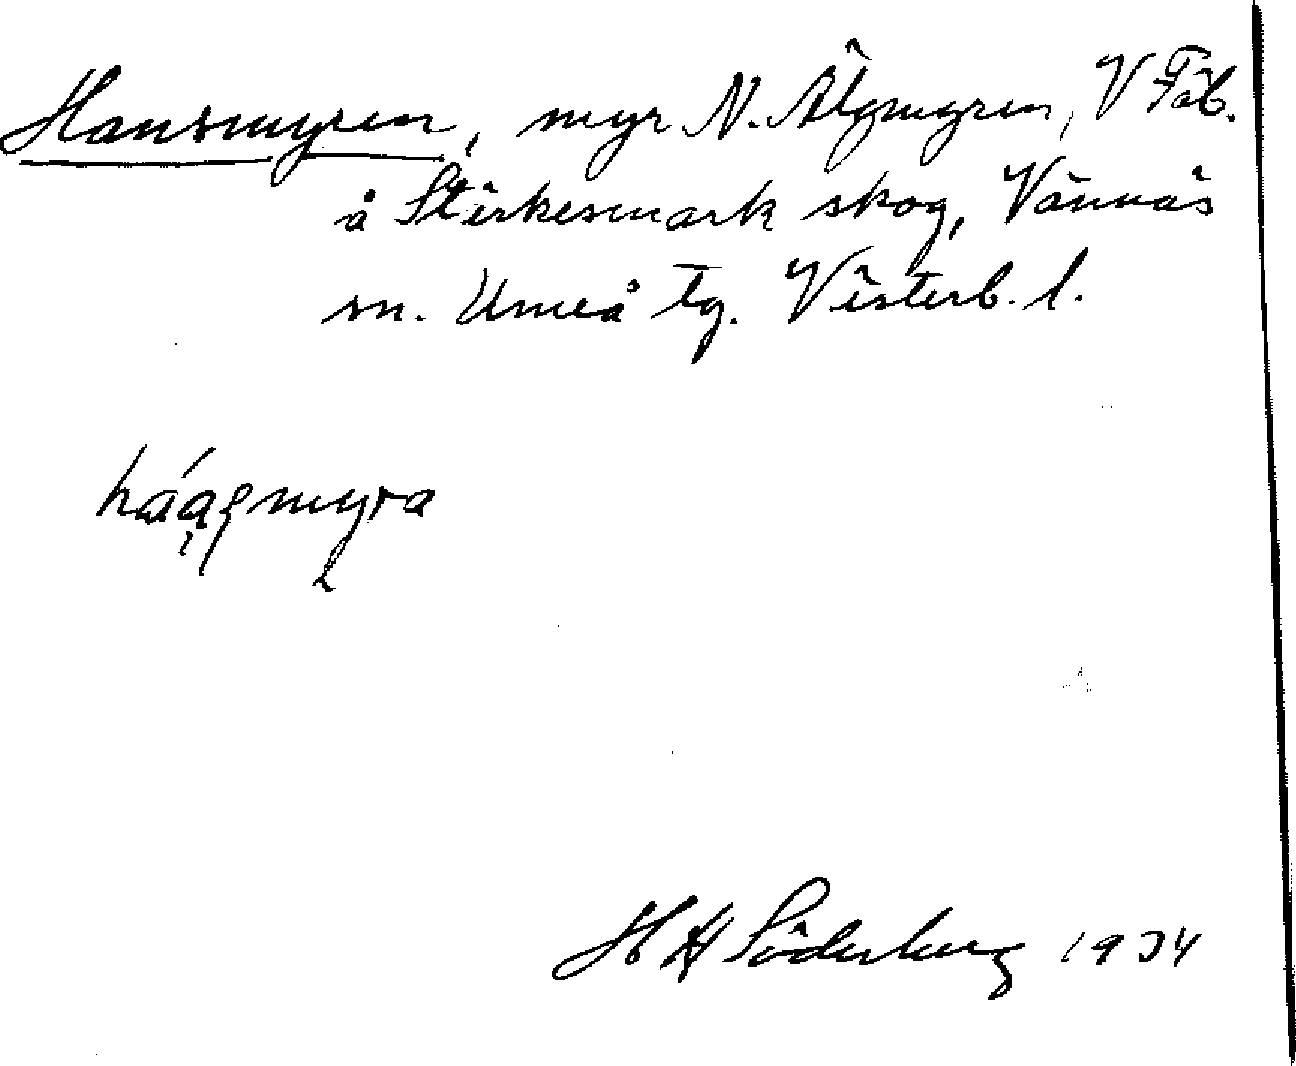 Hansmyren, myr N. Älgmyren, V Fäb.
å Stärkesmark skog, Vännäs
sn. Umeå tg. Västerb. l.
H Söderberg 1934